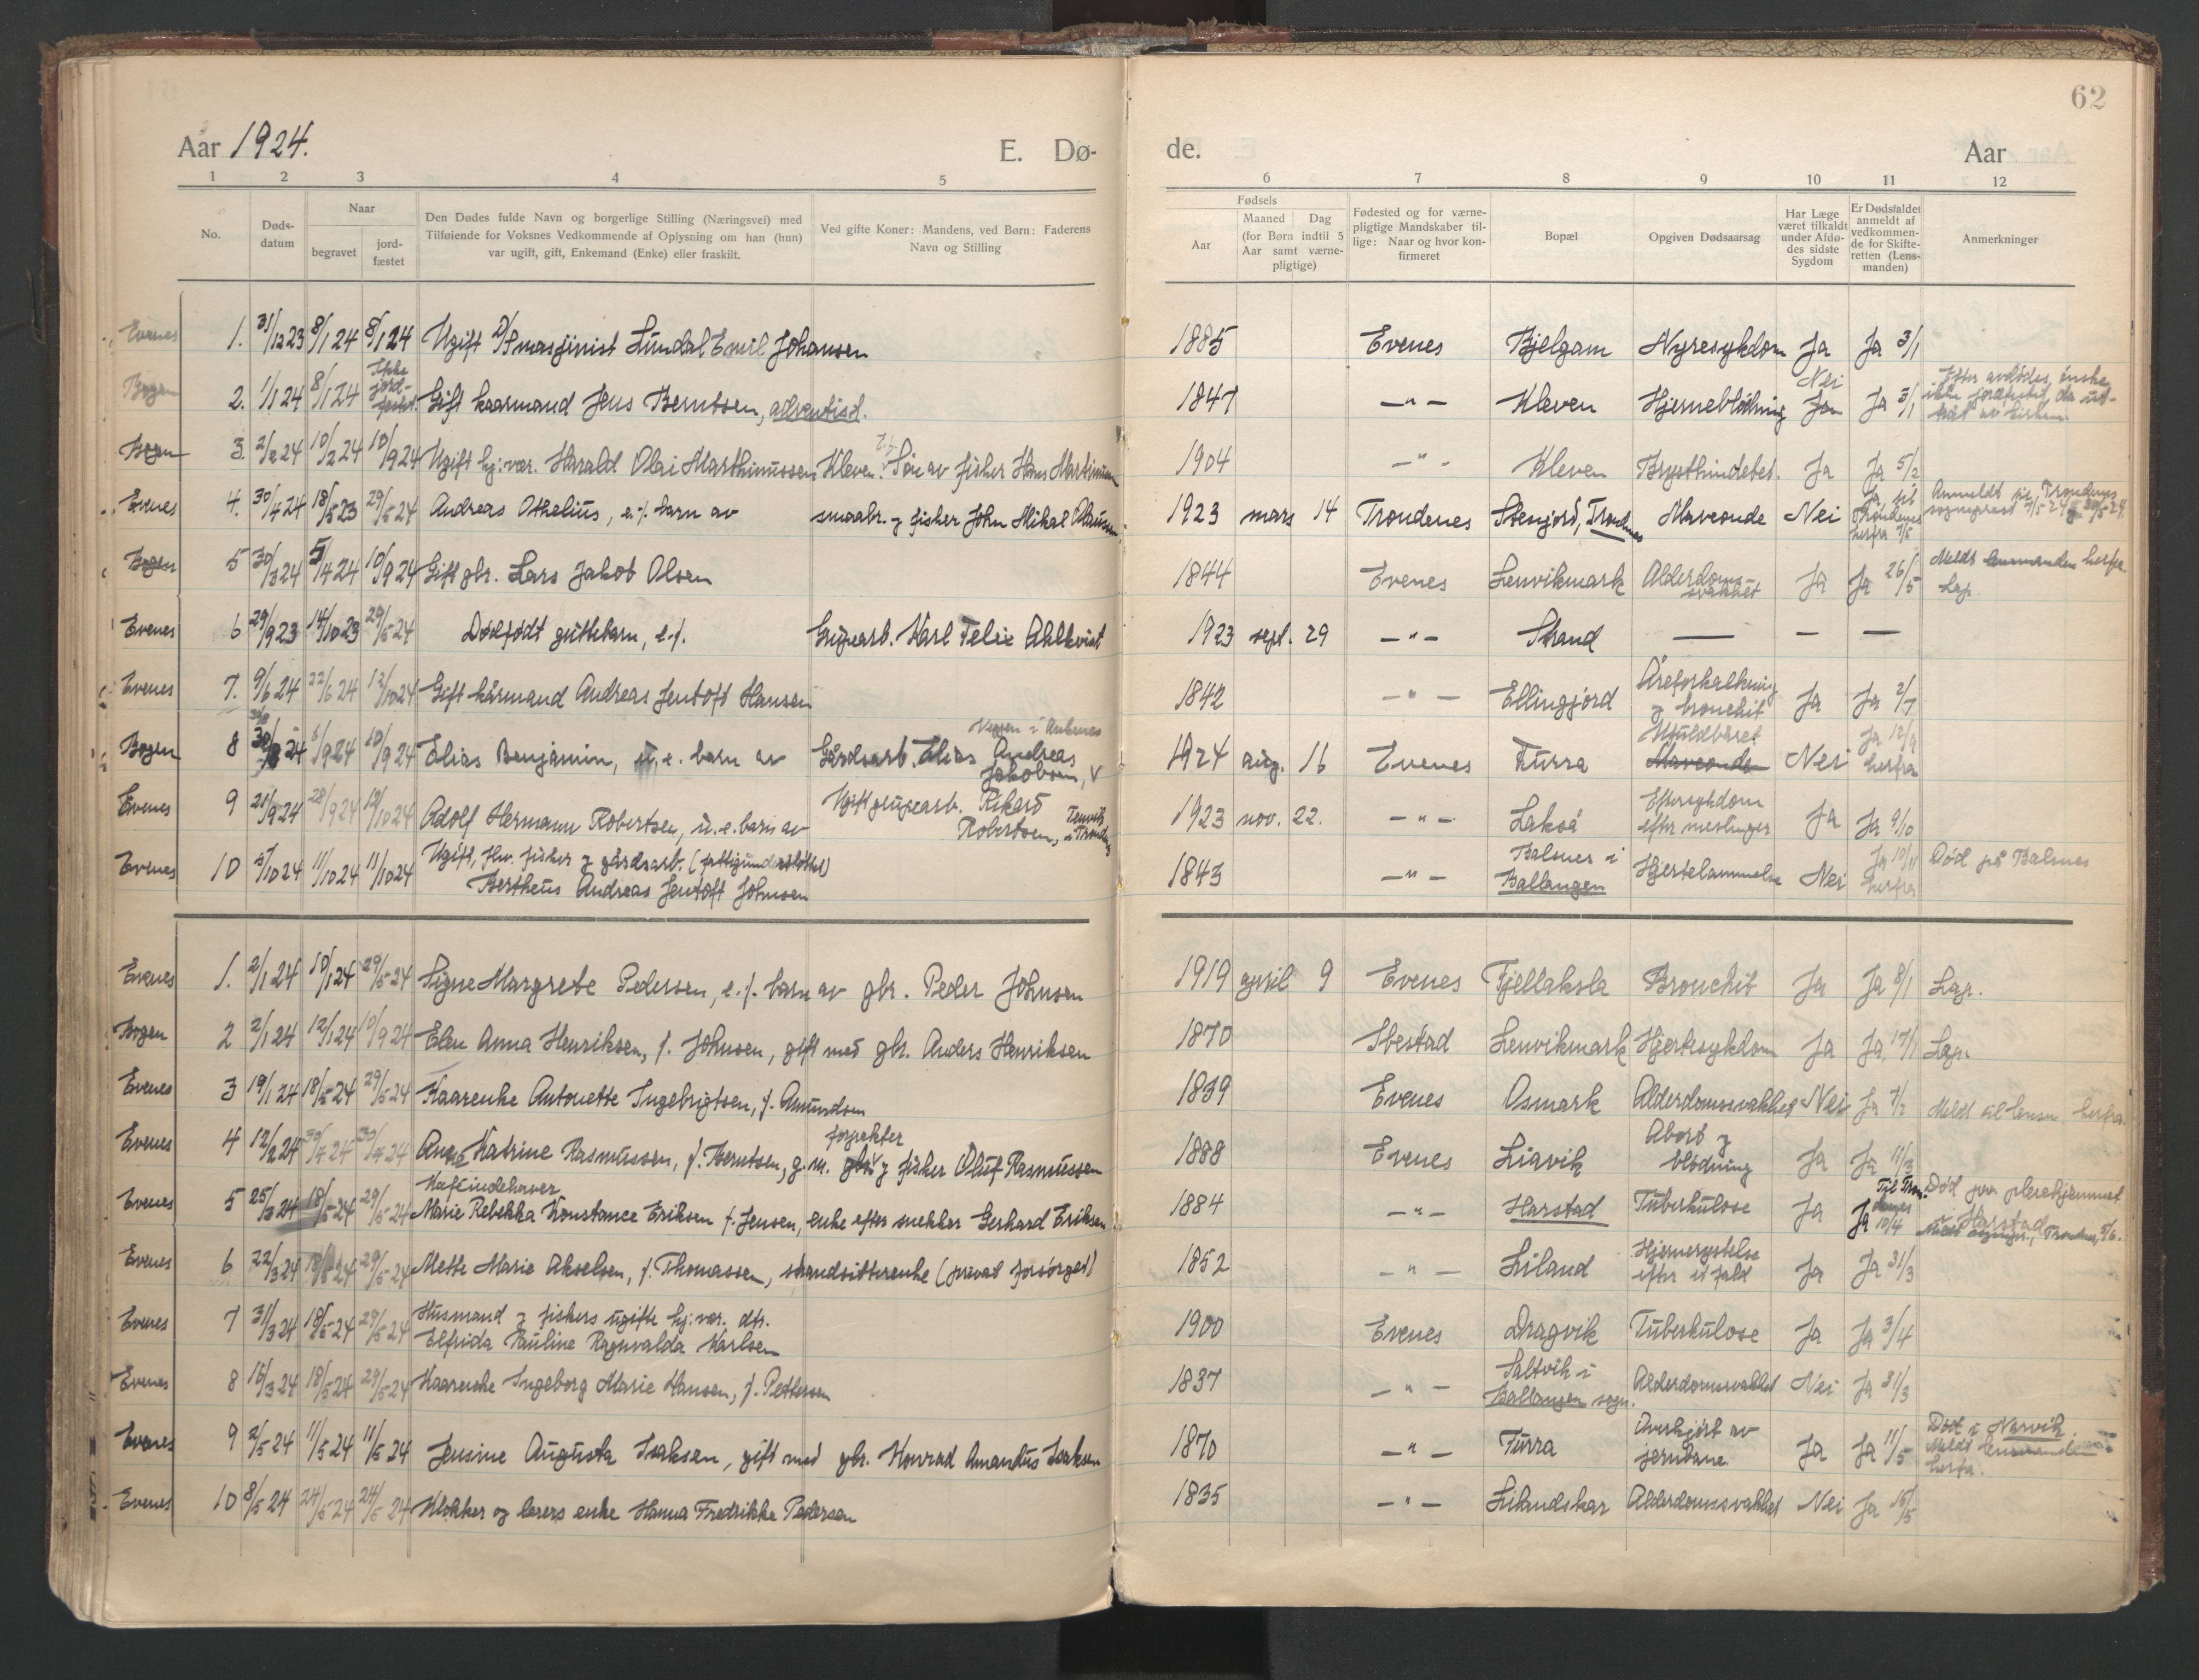 62
Aar 1924. E. Dø- de. Aar
1 2 3 4 5 6 7 8 9 10 11 12
No. Døds-datum Naar begravet jord-fæstet
Den Dødes fulde Navn og borgerlige Stilling (Næringsvei) med
Tilføiende for Voksnes Vedkommende af Oplysning om han (hun)
var ugift, gift, Enkemand (Enke) eller fraskilt.
Ved gifte Koner: Mandens, ved Børn: Faderens
Navn og Stilling
Fødsels
Aar Maaned Dag
(for Børn indtil 5
Aar samt værne-
pligtige)
Fødested og for værne-
pligtige Mandskaber til-
lige: Naar og hvor kon-
firmeret
Bopæl
Opgiven Dødsaarsag
Har Læge
været tilkaldt
under Afdø-
des sidste
Sygdom
Er Dødsfaldet
anmeldt af
vedkommen-
de for Skifte-
retten (Lens-
manden)
Anmerkninger
Evenes 1. 31/12 23 8/1 24 8/1 24 Ugift D/S masjinist Lundal Emil Johansen 1885 Evenes Bjelgam Nyresykdom Ja Ja 3/1
Bogen 2. 1/1 24 8/1 24 Ikke jord-festet. Gift kaarmand Jens Berntsen, adventist. 1847 -"- Kleven Hjerneblödning Nei Ja Ja 3/1 Efter avdødes ønske ikke jordfestet, da
Bogen 3. 2/2 24 10/2 24 10/9 24 Ugift hj: vær. Harald Olai Marthinussen Kleven. Søn av fisher Hans Martinussen 1904 -"- Kleven Brysthindebet. Ja Ja 5/2
Evenes 4. 30/4 24 18/5 23 29/5 24 Andreas Othelius, e. f. barn av smaabr. og fisher John Mikal 1923 mars 14 Trondenes Stenjord, Trondenes Maveonde Nei Ja til Trondenes herfra 7/5 Anmeldt til Trondenes sogneprest 7/5 24 og 30/5 24.
Bogen 5 30/3 24 5/4 24 10/9 24 Gift gbr. Lars Jakob Olsen 1844 Evenes Lenvikmark Alderdoms-svakhet Ja Ja 26/5 Meldt lensmanden herfra. Lap.
Evenes 6 29/9 23 14/10 23 29/5 24 Dødfødt guttebarn, e. f. Grupearb. Karl Felix Ahlkvist 1923 sept. 29 -"- Strand — — —
Evenes 7. 9/6 24 22/6 24 12/10 24 Gift kårmand Andreas Jentoft Hansen 1842 -"- Ellingjord Åreforkalkning og bronchit Ja Ja 2/7
Bogen 8 30/8 24 6/9 24 10/9 24 Elias Benjamin, u. e. barn av Gårdsarb. Elias Andreas Jakobsen, 1924 aug. 16 Evenes Turra Maveonde Nei Ja 12/9 herfra
Evenes 9 21/9 24 28/9 24 12/10 24 Adolf Hermann Robertsen, u. e. barn av Ugift grupearb. Rikard Robertsen, 1923 nov. 22. -"- Lakså Eftersykdom efter meslinger Ja Ja 9/10
Evenes 10 5/10 24 11/10 24 11/10 24 Ugift, fhv. fisker og gårdsarb. (fattigunderstöttet)
Bertheus Andreas Jentoft Johnsen 1843 -"- Balsnes i Ballangen Hjertelammelse Nei Ja 10/11 herfra Død på Balsnes
Evenes 1. 2/1 24 10/1 24 29/5 24 Signe Margrete Pedersen, e. f. barn av gbr. Peder Johnsen 1919 april 9 Evenes Fjellaksla Bronchit Ja Ja 8/1 Lap.
Bogen 2 2/1 24 12/1 24 10/9 24 Elen Anna Henriksen, f. Johnsen, gift med gbr. Anders Henriksen 1870 Ibestad Lenvikmark Hjertesykdom Ja Ja 17/1 Lap.
Evenes 3 19/1 24 18/5 24 29/5 24 Kaarenke Antonette Ingebrigtsen, f. Amundsen 1839 Evenes Osmark Alderdomssvakhet Nei Ja 7/2 Meldt til lensm. herfra
Evenes 4 12/2 24 30/4 24 30/4 24 Ane Katrine Rasmussen, f. Berntsen, g. m. forpakter gbr. og fisker Oluf Rasmussen 1888 Evenes Liavik Abort og blödning Ja Ja 11/3
Evenes 5 25/3 24 18/5 24 29/5 24 Kafeindehaver
Marie Rebekka Konstance Eriksen f. Jensen, enke efter snekker Gerhard Eriksen 1884 -"- Harstad Tuberkulose Ja Ja 10/4 Til Trondenes Død paa pleiehjemmet i Harstad
Evenes 6 22/3 24 18/5 24 29/5 24 Mette Marie Akselsen, f. Thomassen, strandsitterenke (privat forsørget) 1852 -"- Liland Hjernerystelse efter et fald Ja Ja 31/3
Evenes 7 31/3 24 18/5 24 29/5 24 Husmand og fiskers ugifte hj: vær. dtr.
Elfrida Pauline Ragnvalda Karlsen 1900 Evenes Dragvik Tuberkulose Ja Ja 3/4
Evenes 8 16/3 24 18/5 24 29/5 24 Kaarenke Ingeborg Marie Hansen, f. Pettersen 1837 -"- Saltvik i Ballangen sogn. Alderdomssvakhet Nei Ja 31/3
Evenes 9 2/5 24 11/5 24 11/5 24 Jensine Augusta Isaksen, gift med gbr. Konrad Amandus Isaksen 1870 -"- Turra Overkjørt av jernbane Ja Ja 11/5 Død i Narvik. Meldt lensmanden herfra.
Evenes 10 8/5 24 24/5 24 24/5 24 Klokker og lærers enke Hanna Fredrikke Pedersen 1835 -"- Lilandskar Alderdomssvakhet Nei Ja 15/5